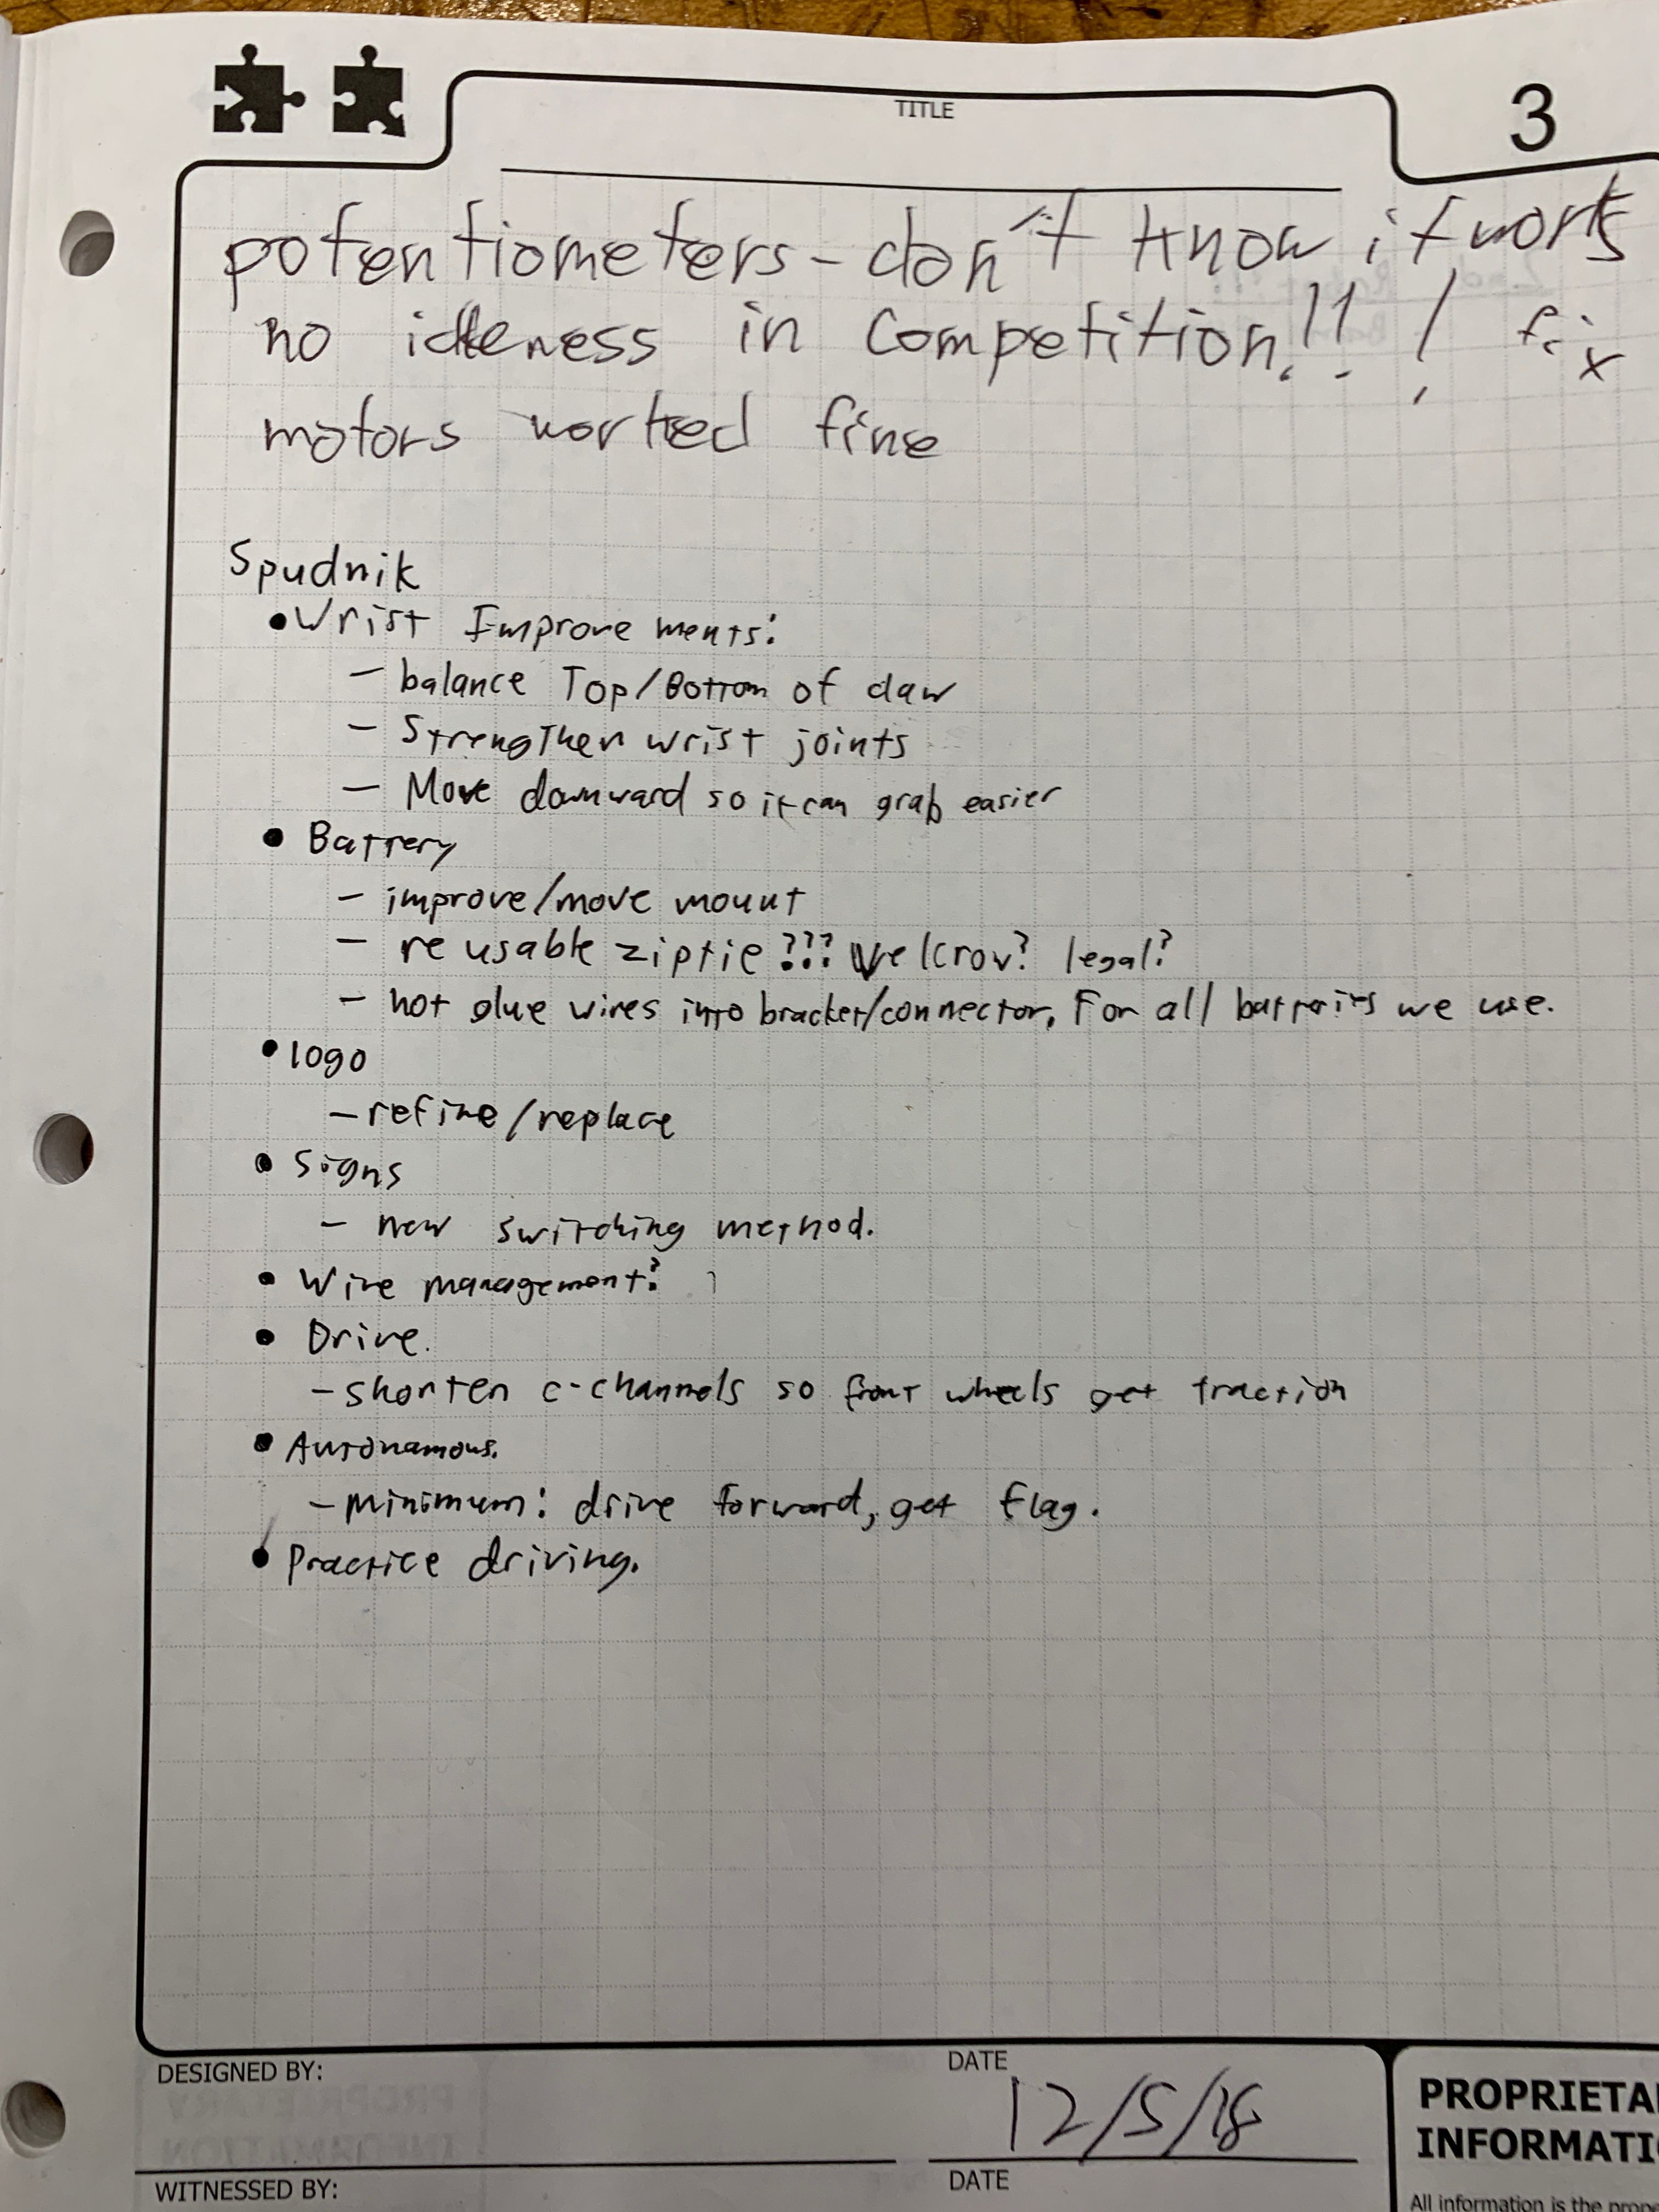 TITLE
3
potentiometers - don't know if works
no idleness in competition!!! fix
motors worked fine
Spudnik
• Wrist Improvements:
- balance Top/Bottom of claw
- Strengthen wrist joints
- Move downward so it can grab easier
• Battery
- improve/move mount
- reusable ziptie??? Velcrov? legal?
- hot glue wires into bracket/connector. For all batteries we use.
• logo
- refine/replace
• Signs
- new switching method.
• Wire management?
• Drive.
- shorten c-channels so front wheels get traction
• Autonamous.
- Minimum: drive forward, get flag.
• Practice driving.
DESIGNED BY:
DATE
12/5/18
WITNESSED BY:
DATE
PROPRIETA
INFORMATI
All information is the prope